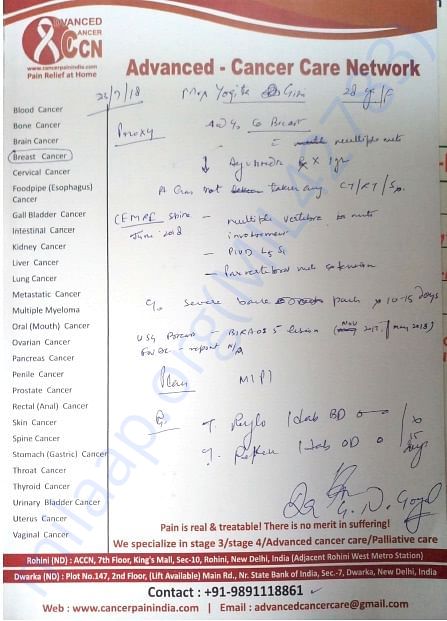 ADVANCED
CANCER
CCN
www.cancerpainindia.com
Pain Relief at Home
Advanced - Cancer Care Network
28 yr/F
Blood Cancer
Bone Cancer
Brain Cancer
Breast Cancer
Cervical Cancer
Foodpipe (Esophagus)
Cancer
Gall Bladder Cancer
Intestinal Cancer
Kidney Cancer
Liver Cancer
Lung Cancer
Metastatic Cancer
Multiple Myeloma
Oral (Mouth) Cancer
Ovarian Cancer
Pancreas Cancer
Penile Cancer
Prostate Cancer
Rectal (Anal) Cancer
Skin Cancer
Spine Cancer
Stomach (Gastric) Cancer
Throat Cancer
Thyroid Cancer
Urinary Bladder Cancer
Uterus Cancer
Vaginal Cancer
Proxy
Ca Breast
multiple mets
x 1 yr
not taken any CT/RT/
CEMRI spine - multiple vertebra
June 2018 involvement
- PIVD L5 S1
c/o severe back pain x 10-15 days
USG Breast - BIRADS 5 lesion
FNAC - report N/A
Plan
1 tab BD
1 tab OD
Pain is real & treatable! There is no merit in suffering!
We specialize in stage 3/stage 4/Advanced cancer care/Palliative care
Rohini (ND) : ACCN, 7th Floor, King's Mall, Sec-10, Rohini, New Delhi, India (Adjacent Rohini West Metro Station)
Dwarka (ND) : Plot No.147, 2nd Floor, (Lift Available) Main Rd., Nr. State Bank of India, Sec.-7, Dwarka, New Delhi, India
Contact : +91-9891118861
Web : www.cancerpainindia.com | Email : advancedcancercare@gmail.com